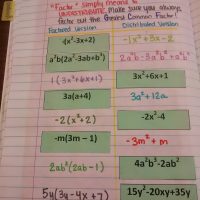 "Factor" simply means to
UNDISTRIBUTE. Make sure you always
factor out the Greatest Common Factor!
Factored Version
Distributed Version
-(x²-3x+2)
-1x²+3x-2
a²b(2a²-3ab+b²)
1(3x²+6x+1)
3x²+6x+1
3a(a+4)
3a²+12a
-2(x²+2)
-2x²-4
-m(3m-1)
-3m²+m
2ab²(2ab-1)
4a²b³-2ab²
5y(3y-4x+7)
15y²-20xy+35y